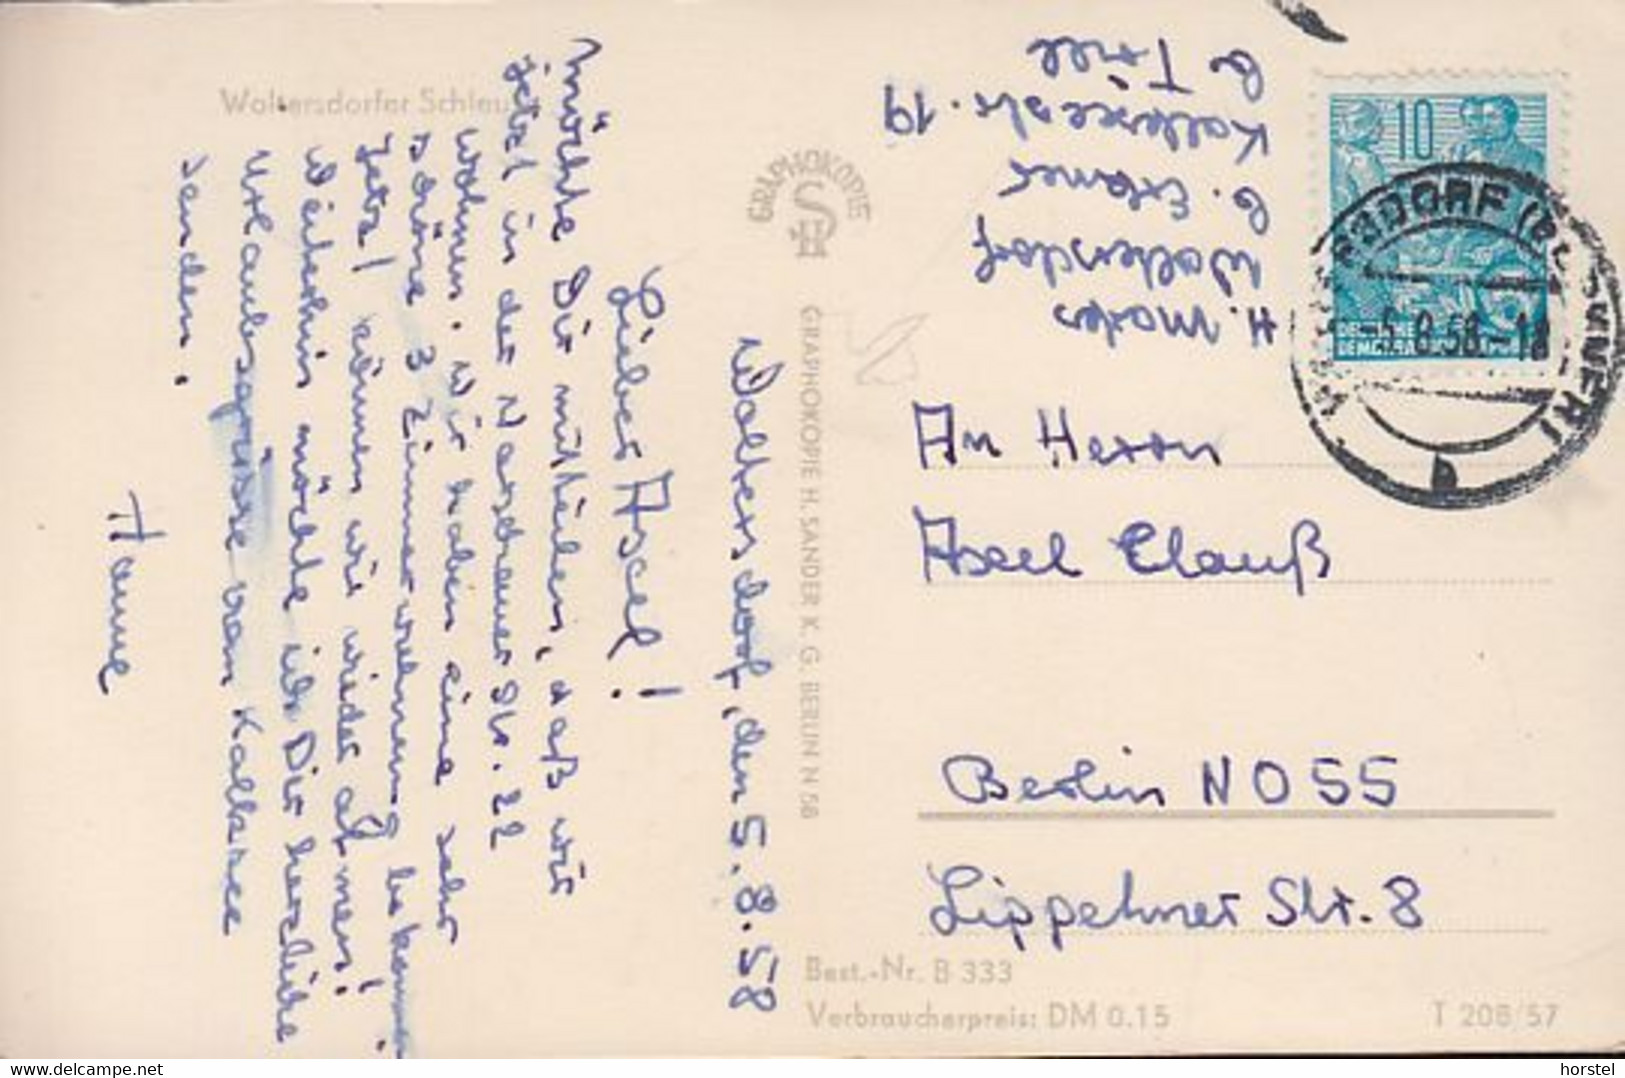 Woltersdorfer Schleuse
Woltersdorf, den 5.8.58
Lieber Axel!
Möchte Dir mitteilen, daß wir
jetzt in der Nazch str. 22
wohnen. Wir haben eine sehr
schöne 3 Zimmerwohnung bekommen
Jetzt können wir wieder atmen!
Weiterhin möchte ich Dir herzliche
Urlaubsgrüsse vom Kalksee
senden.
Hanne
GRAPHOKOPIE
HS
GRAPHOKOPIE H. SANDER K. G. BERLIN N 58
H.
Woltersdorf
b. Erkner
Kalkseestr. 19
b.
10
DEUTSCHE
DEMOKRATISCHE
-5.8.58-18
b
An Herrn
Axel Clauß
Berlin NO 55
Lippehner Str. 8
Best.-Nr. B 333
Verbraucherpreis: DM 0.15
T 208/57
horstel